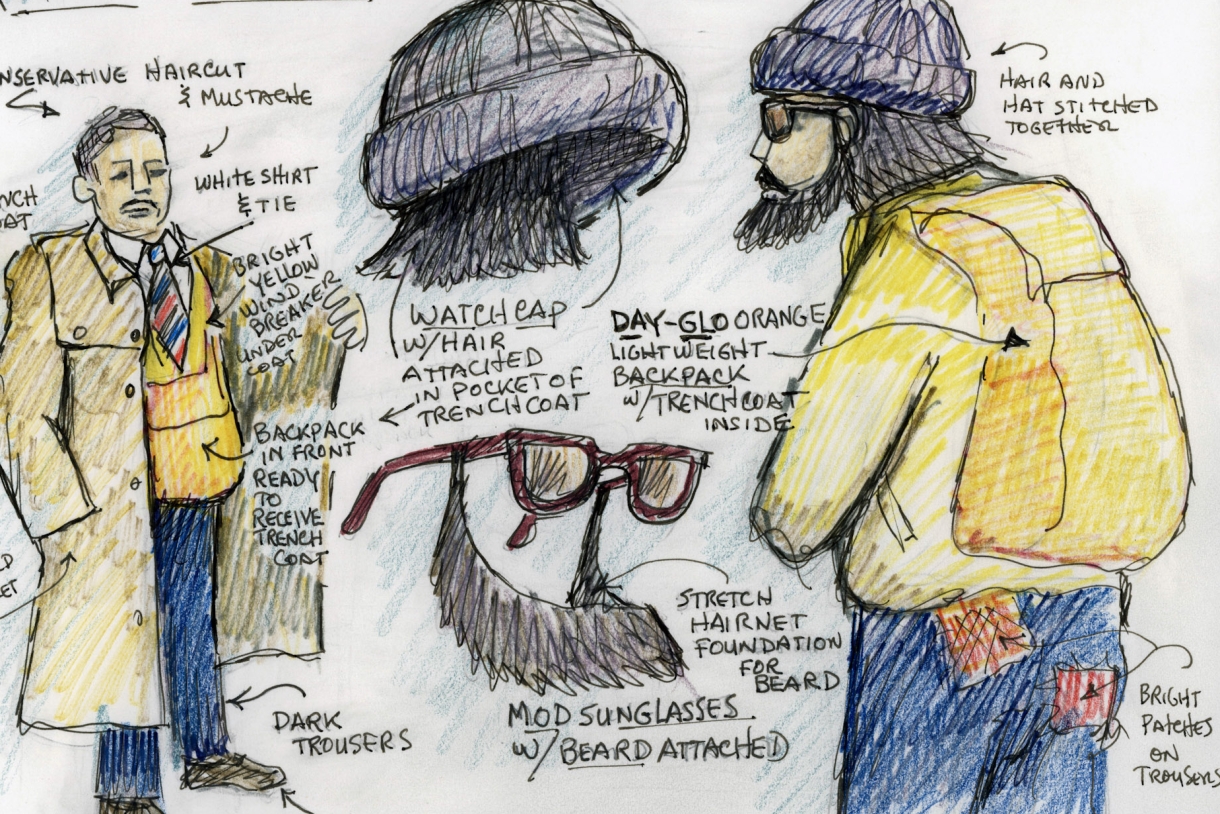 HAIRCUT
& MUSTACHE
WHITE SHIRT
& TIE
BRIGHT
YELLOW
WIND
BREAKER
UNDER
COAT
BACKPACK
IN FRONT
READY
TO
RECEIVE
TRENCH
COAT
DARK
TROUSERS
WATCH CAP
W/HAIR
ATTACHED
IN POCKET OF
TRENCHCOAT
DAY-GLO ORANGE
LIGHTWEIGHT
BACKPACK
W/TRENCHCOAT
INSIDE
HAIR AND
HAT STITCHED
TOGETHER
STRETCH
HAIRNET
FOUNDATION
FOR
BEARD
MOD SUNGLASSES
W/BEARD ATTACHED
BRIGHT
PATCHES
ON
TROUSERS